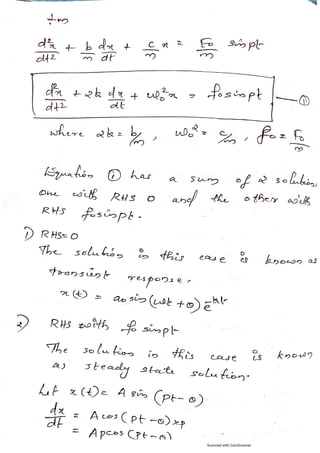 ÷m
d²x/dt² + b/m dx/dt + c/m x = F₀/m sinpt
d²x/dt² + 2k dx/dt + ω₀²x = f₀sinpt — ①
where 2k = b/m, ω₀² = c/m, f₀ = F₀/m
Equation ① has a sum of 2 solution,
one with RHS 0 and the other with
RHS f₀sinpt.
1) RHS=0
The solution in this case is known as
transient response.
x(t) = a₀ sin(ωt + θ) e⁻ᵏᵗ
2) RHS with f₀ sinpt
The solution in this case is known
as steady state solution.
Let x(t) = A sin (pt - θ)
dx/dt = A cos (pt - θ) xp
= Ap cos (pt - θ)
Scanned with CamScanner